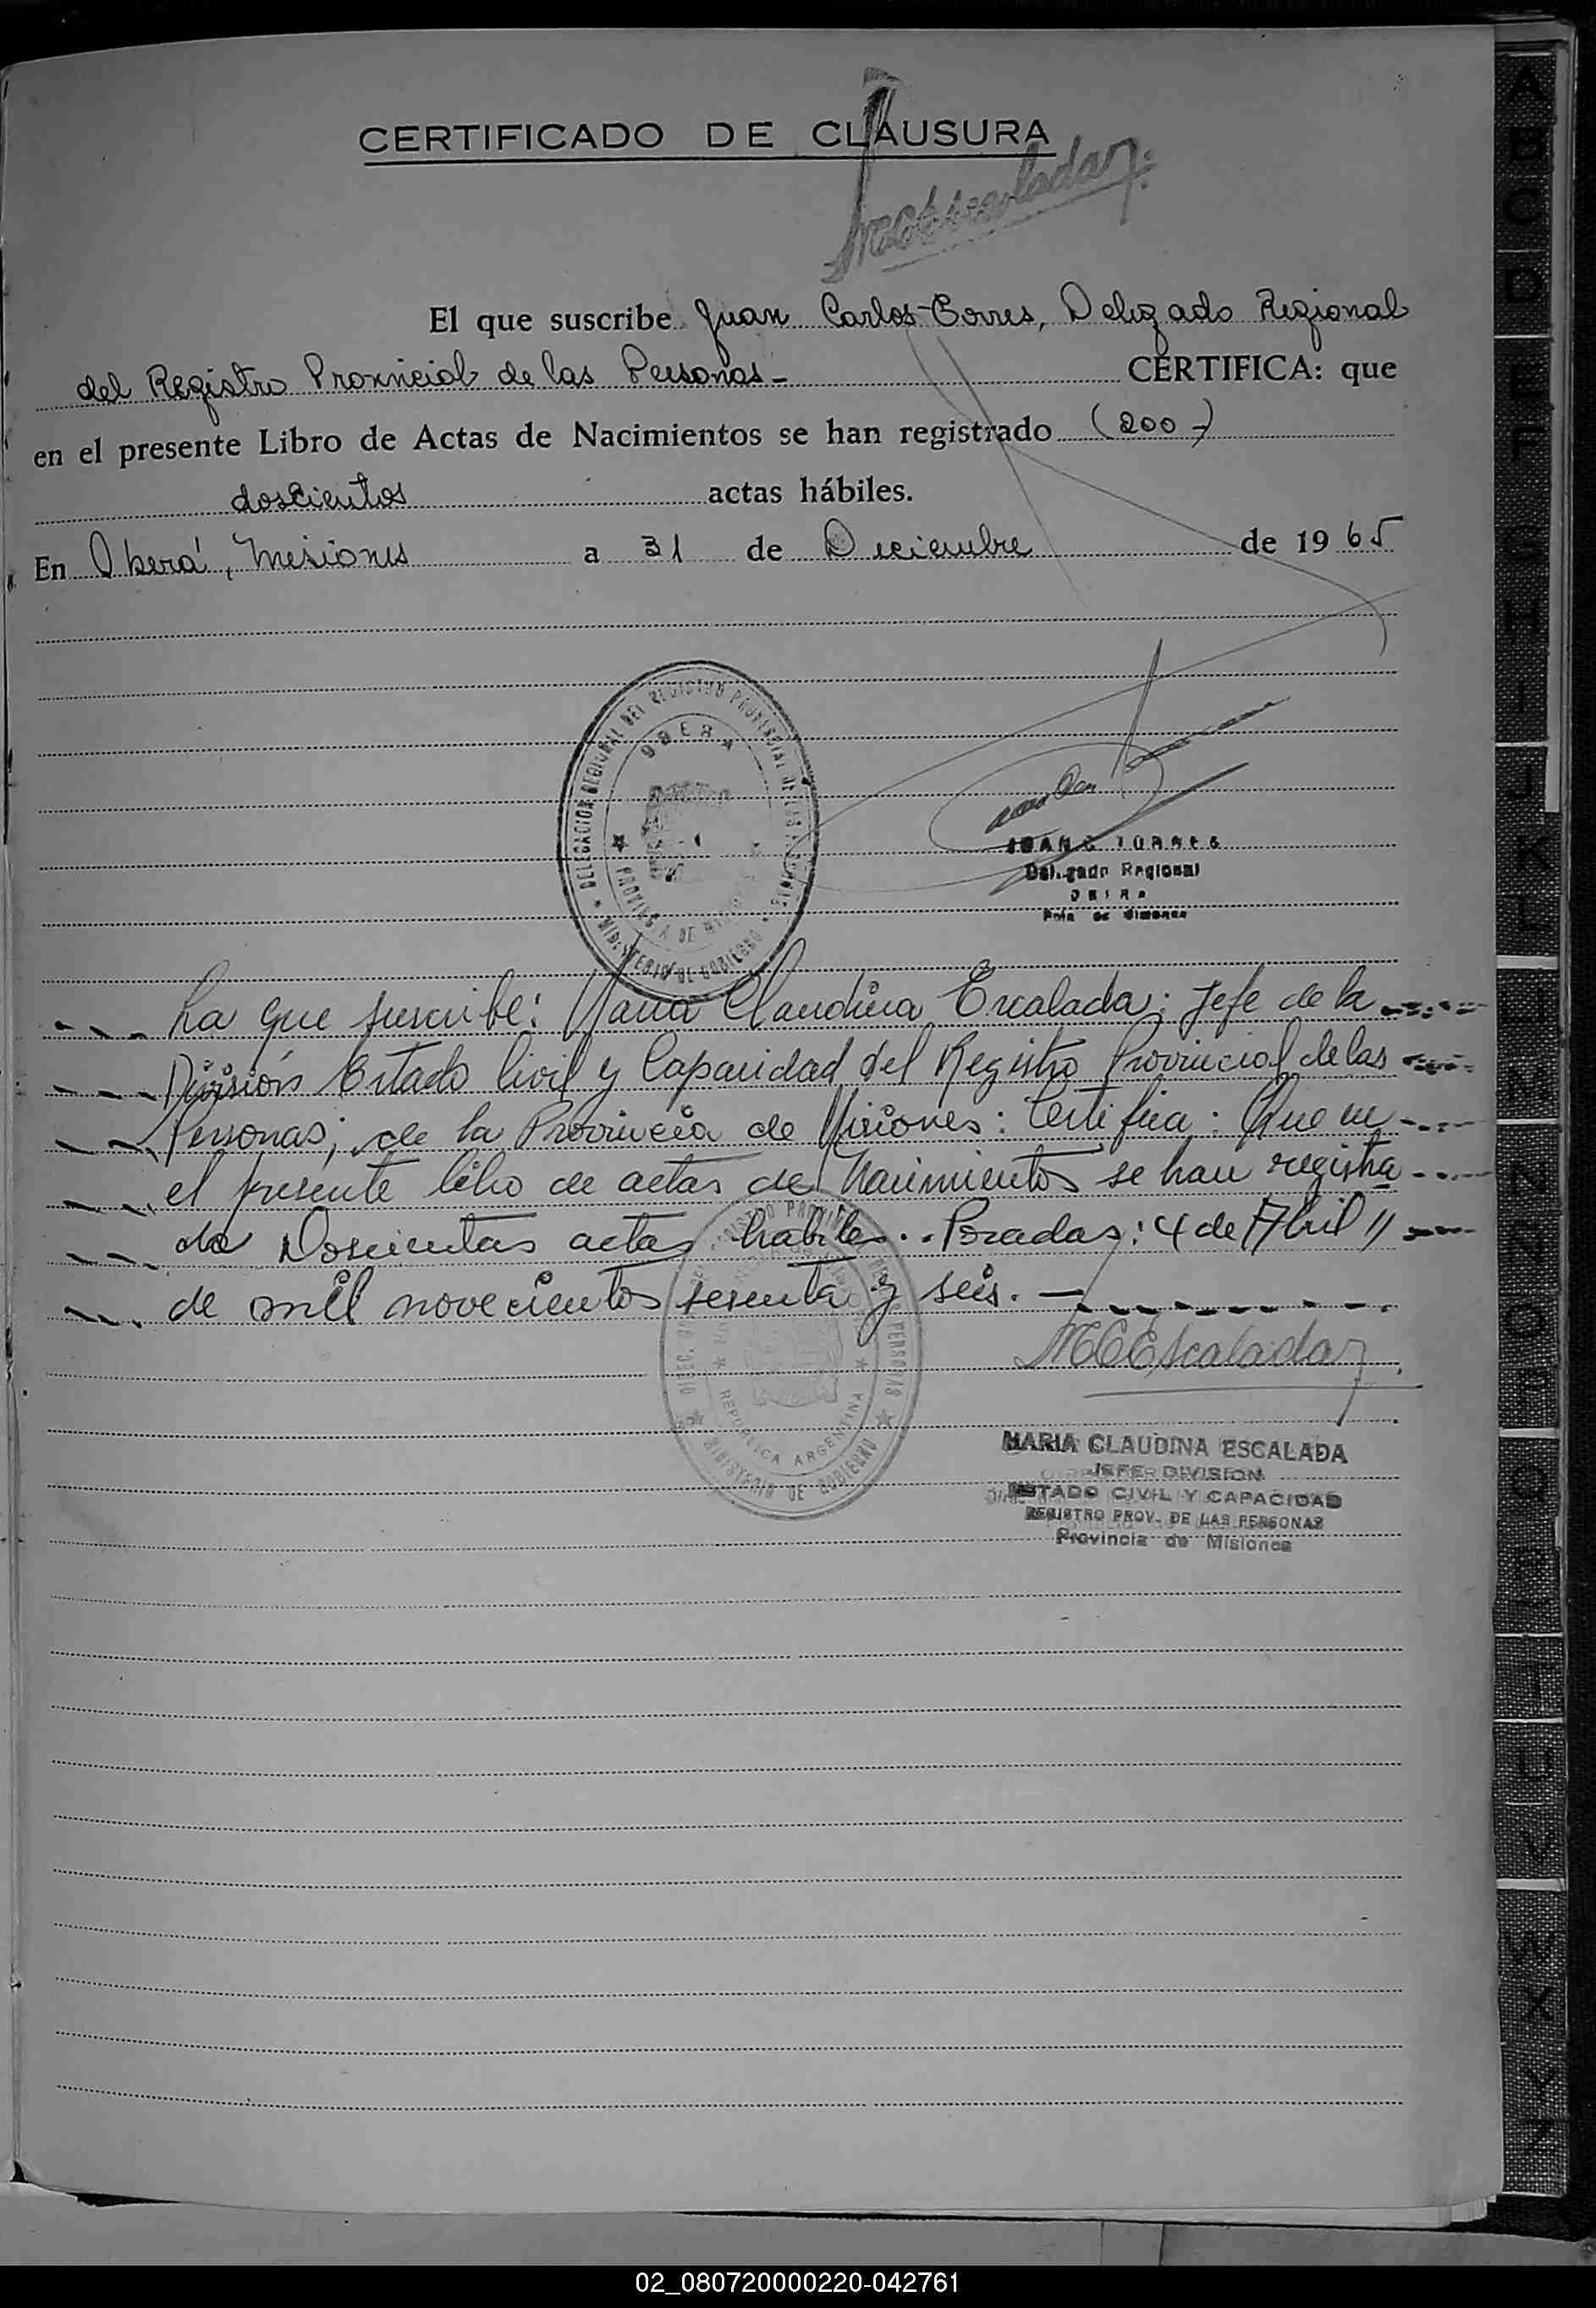 CERTIFICADO DE CLAUSURA
MCEscalada
El que suscribe Juan Carlos Torres, Delegado Regional
del Registro Provincial de las Personas - CERTIFICA: que
en el presente Libro de Actas de Nacimientos se han registrado (200-)
doscientos actas hábiles.
En Oberá, Misiones a 31 de Diciembre de 1965
DELEGACION REGIONAL DEL REGISTRO PROVINCIAL DE LAS PERSONAS
OBERA
PROVINCIA DE MISIONES
MINISTERIO DE GOBIERNO
JUAN C. TORRES
Delegado Regional
OBERA
La que suscribe: Maria Claudina Escalada; Jefe de la
División Estado Civil y Capacidad del Registro Provincial de las
Personas; de la Provincia de Misiones: Certifica: Que en
el presente libro de actas de Nacimientos se han registra
do Doscientas actas habiles.. Posadas: 4 de Abril "
de mil novecientos sesenta y seis. -
MCEscalada
REPUBLICA ARGENTINA
MINISTERIO DE GOBIERNO
MARIA CLAUDINA ESCALADA
JEFE DIVISION
ESTADO CIVIL Y CAPACIDAD
REGISTRO PROV. DE LAS PERSONAS
Provincia de Misiones
02_080720000220-042761